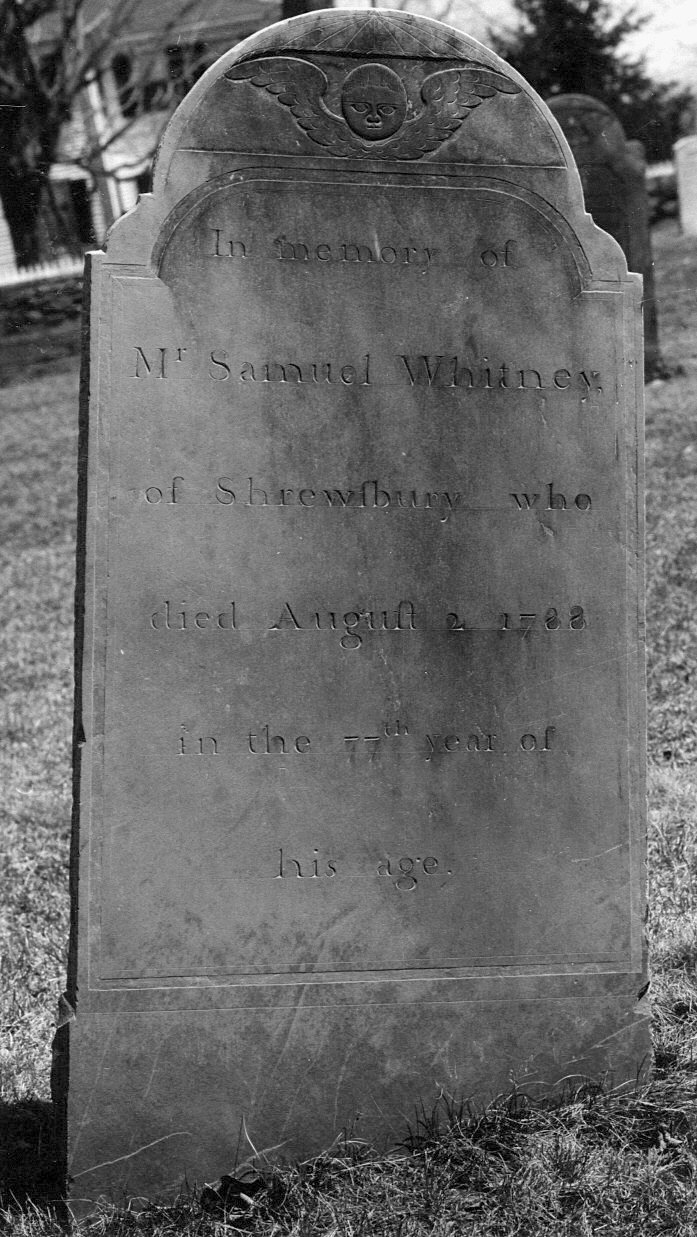 In memory of
Mr Samuel Whitney,
of Shrewſbury who
died Auguſt 2 1788
in the 77th year of
his age.